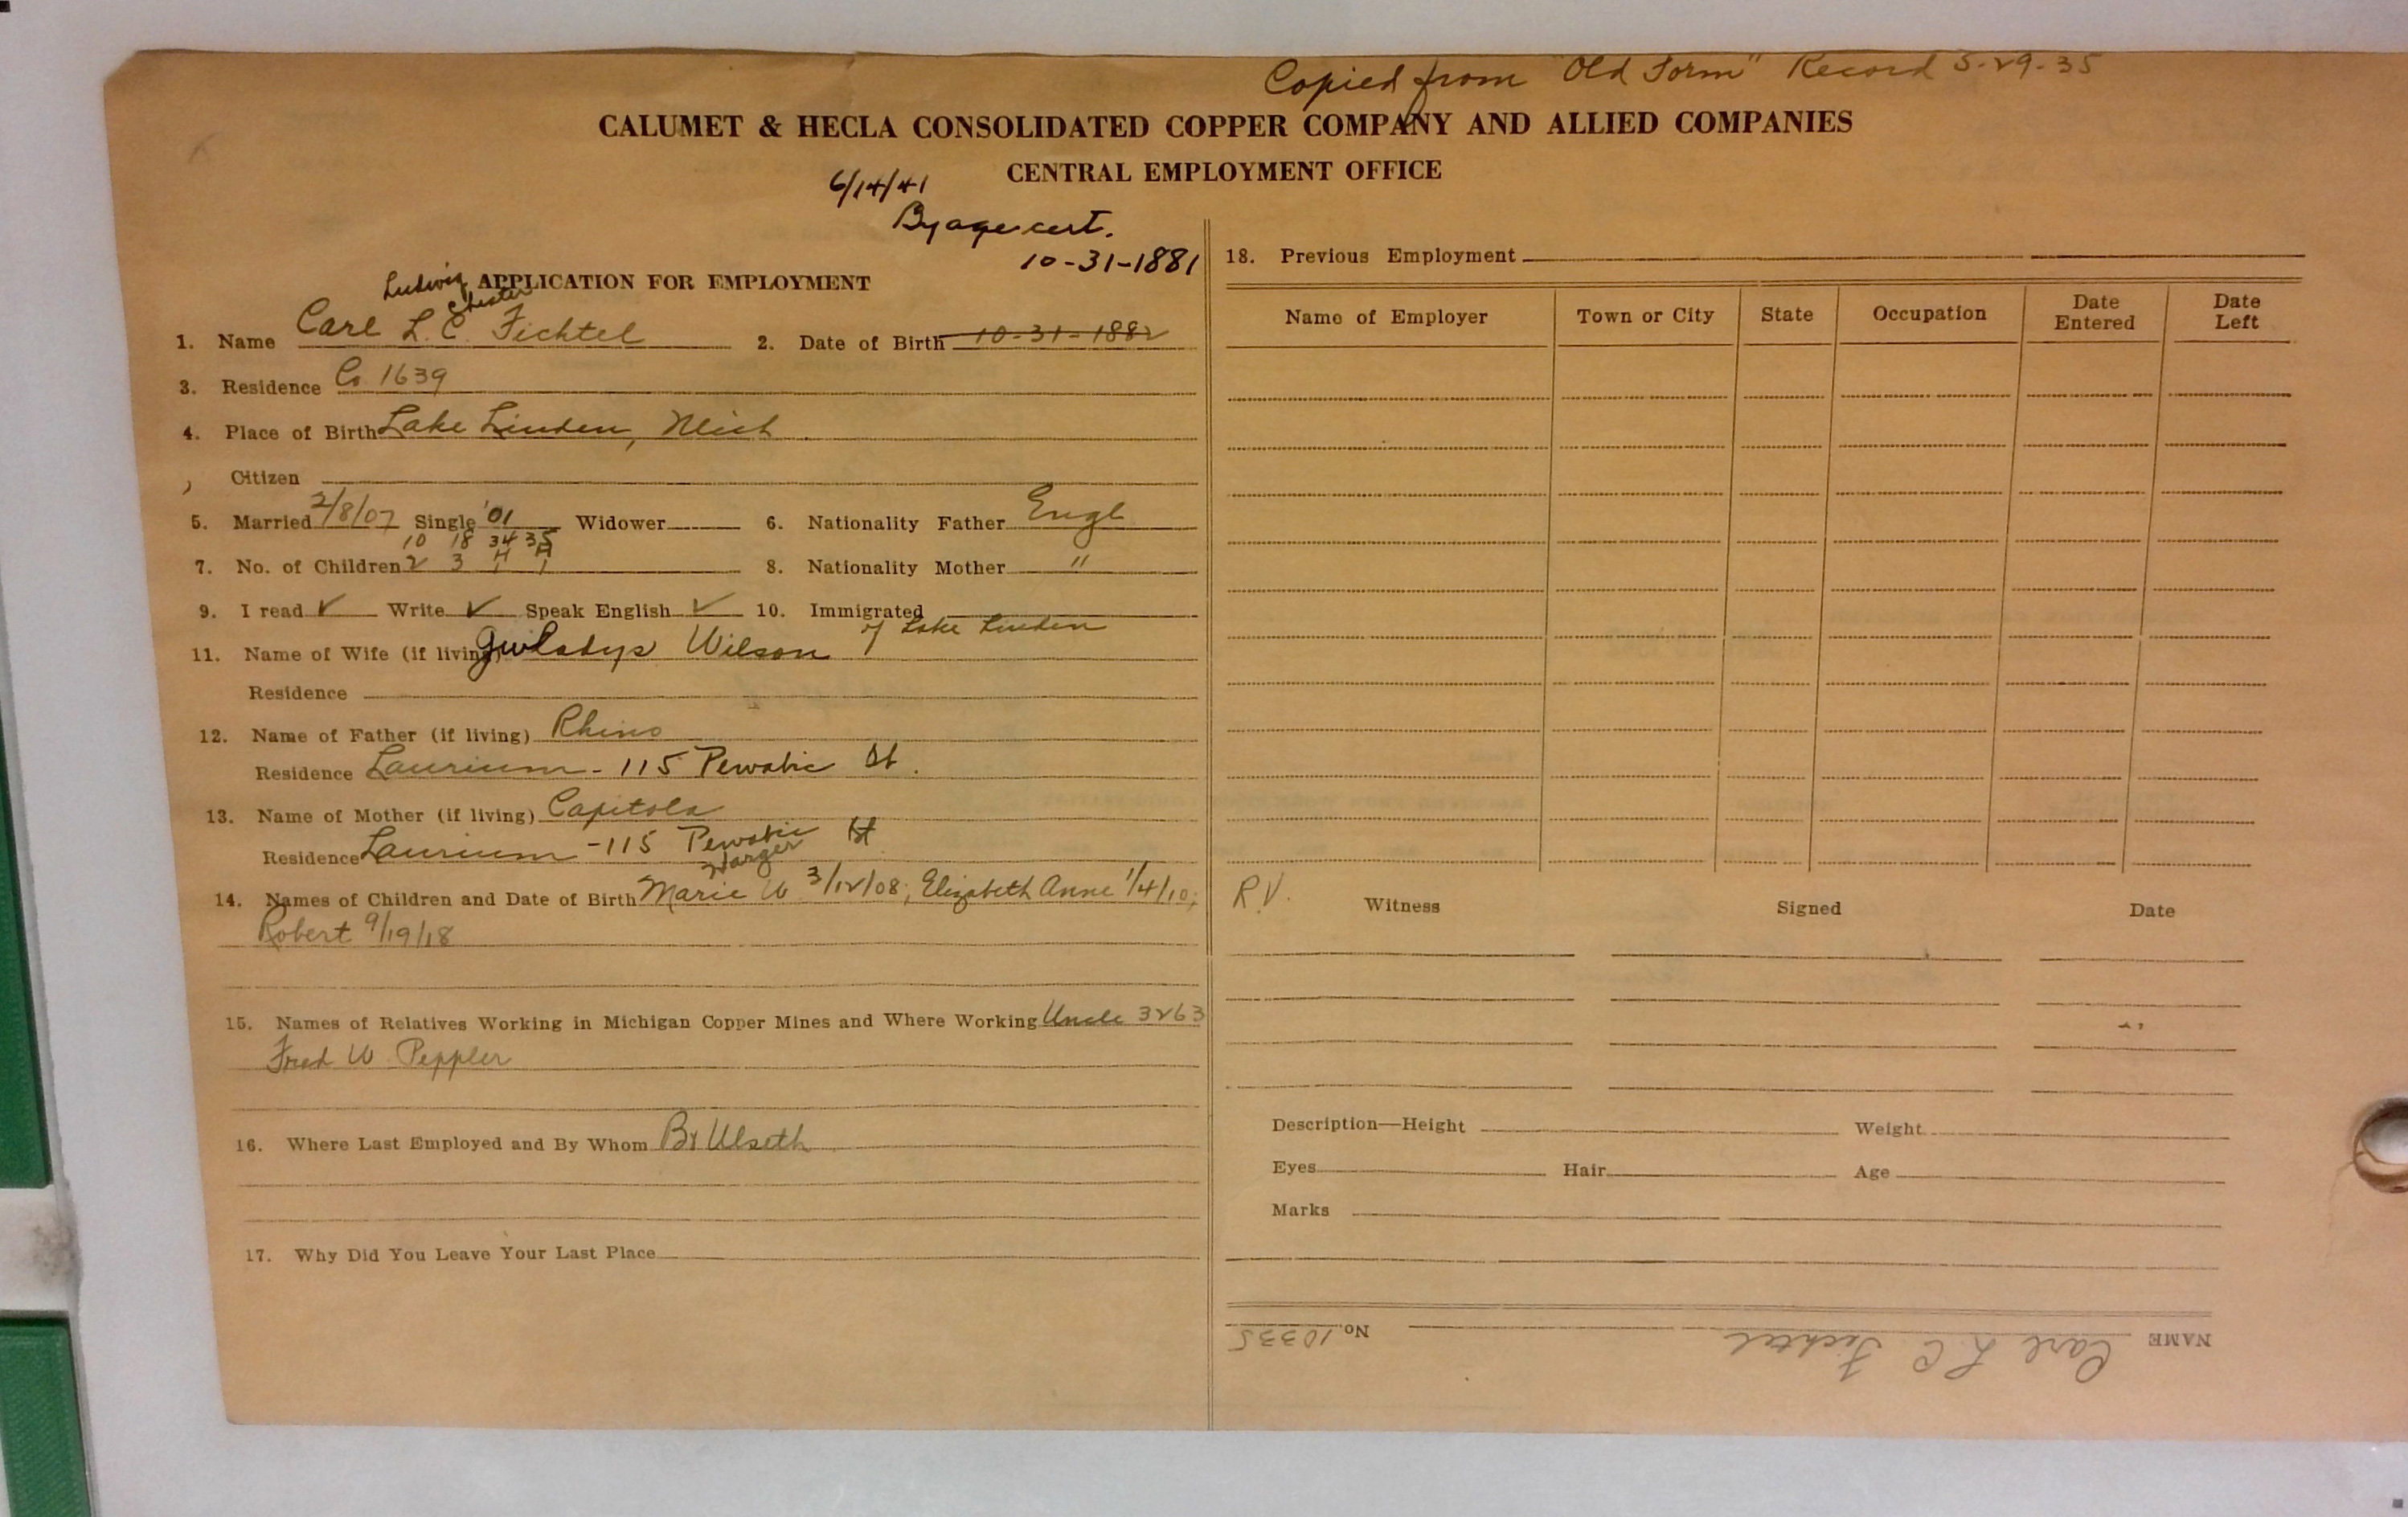 Copied from "Old Form" Record 3-29-35
CALUMET & HECLA CONSOLIDATED COPPER COMPANY AND ALLIED COMPANIES
CENTRAL EMPLOYMENT OFFICE
6/14/41
By age cert.
10-31-1881
APPLICATION FOR EMPLOYMENT
Ludwig Chester
1. Name Carl L. C. Fichtel 2. Date of Birth 10-31-1882
3. Residence Co. 1639
4. Place of Birth Lake Linden, Mich
Citizen
5. Married 2/8/07 Single '01 Widower 6. Nationality Father Engl
10 18 34 35
7. No. of Children 2 3 1 1 8. Nationality Mother "
9. I read ✓ Write ✓ Speak English ✓ 10. Immigrated
of Lake Linden
11. Name of Wife (if living) Gwladys Wilson
Residence
12. Name of Father (if living) Rhino
Residence Laurium - 115 Pewabic St.
13. Name of Mother (if living) Capitola
Residence Laurium - 115 Pewabic St
14. Names of Children and Date of Birth Marie W. 3/12/08; Elizabeth Anne 1/4/10;
Robert 9/19/18
15. Names of Relatives Working in Michigan Copper Mines and Where Working Uncle 3263
Fred W. Peppler
16. Where Last Employed and By Whom By Ulseth
17. Why Did You Leave Your Last Place
18. Previous Employment
Name of Employer Town or City State Occupation Date Entered Date Left
R.V.
Witness Signed Date
Description—Height Weight
Eyes Hair Age
Marks
NAME Carl L C Fichtel No. 10335